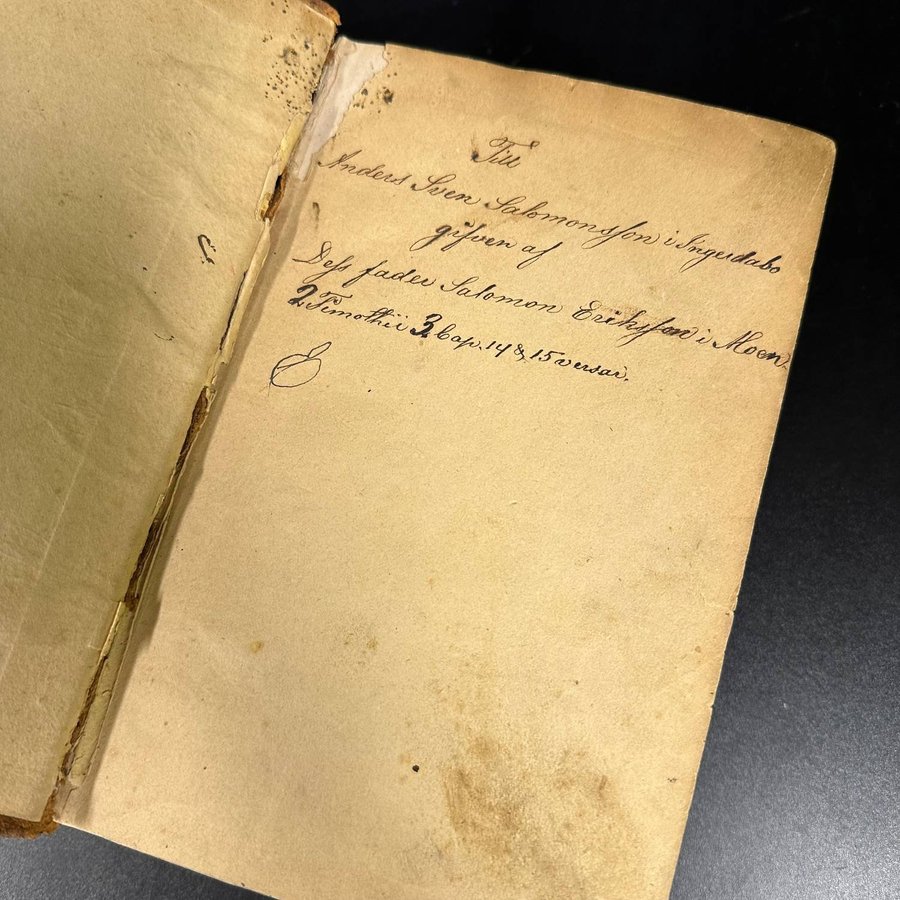 Till
Anders Sven Salomonsson i Ingersdabo
gifven af
Dess fader Salomon Eriksson i Moen.
2 Timothii 3 Cap. 14 & 15 versar.